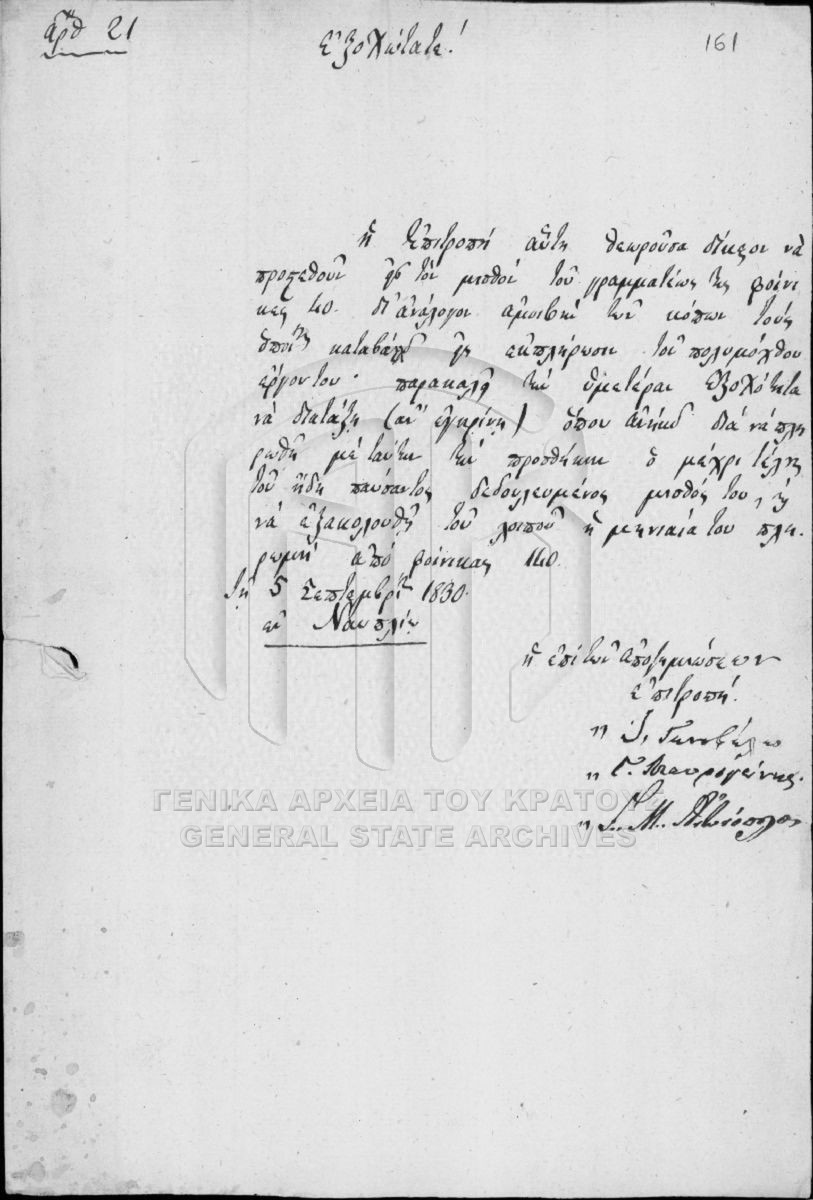 ἀρθ 21
Ἐξοχώτατε!
161
ἡ Ἐπιτροπή αὕτη θεωροῦσα δίκαιον νὰ
προστεθοῦν εἰς τὸν μισθόν τοῦ γραμματέως της φοίνι
κες 40. δι' ἀνάλογον ἀμοιβήν τῶν κόπων τούς
ὁποίους καταβάλλει εἰς ἐκπλήρωσιν τοῦ πολυμόχθου
ἔργου του· παρακαλεῖ τὴν ὑμετέραν Ἐξοχότητα
νὰ διατάξῃ (ἂν ἐγκρίνῃ) ὅπου ἀνήκει διὰ νὰ πλη
ρωθῇ μὲ ταύτην τὴν προσθήκην ὁ μέχρι τέλους
τοῦ ἤδη παύσαντος δεδουλευμένος μισθός του, καὶ
νὰ ἐξακολουθῇ τοῦ λοιποῦ ἡ μηνιαία του πλη-
ρωμή ἀπό φοίνικας 140.
τῇ 5 Σεπτεμβρίου 1830.
ἐν Ναυπλίῳ
ἡ ἐπὶ τῶν ἀποζημιώσεων
ἐπιτροπή.
" Ἰ. Γενοβέλης
" Γ. Μαυρογένης.
" Ι. Μ.
ΓΕΝΙΚΑ ΑΡΧΕΙΑ ΤΟΥ ΚΡΑΤΟΥΣ
GENERAL STATE ARCHIVES